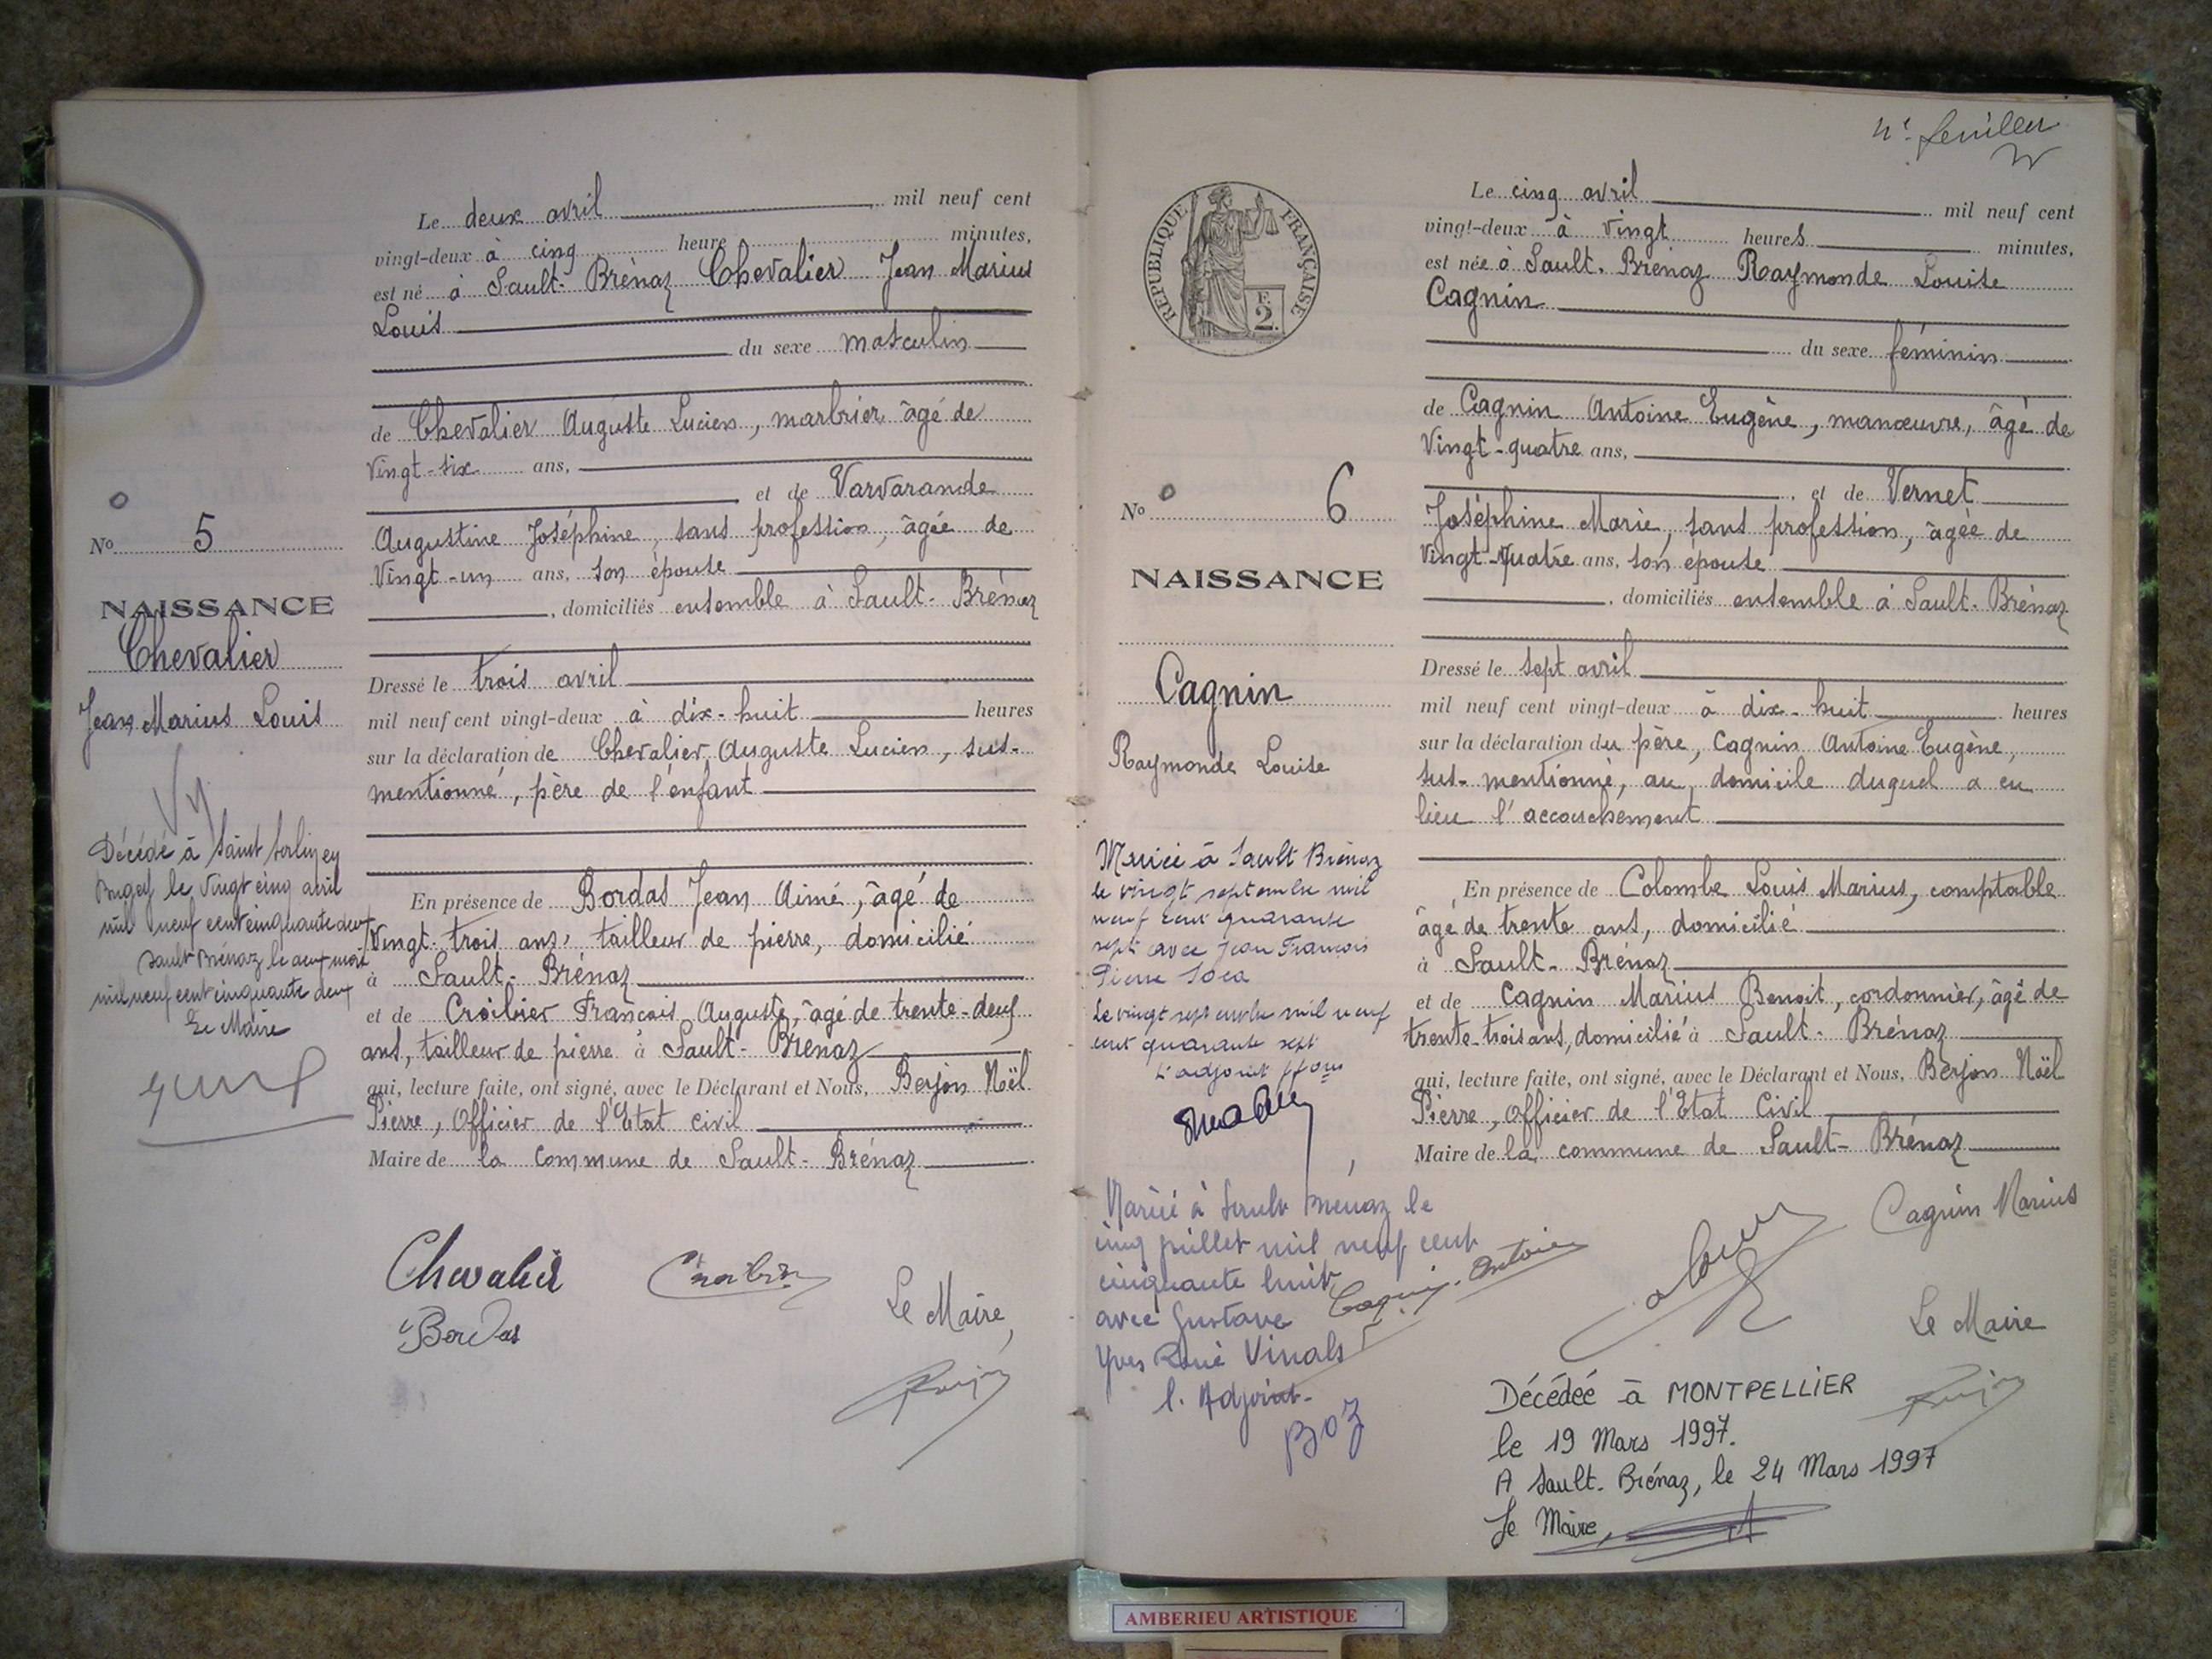 Le deux avril mil neuf cent
vingt-deux à cinq heure minutes,
est né à Sault-Brénaz Chevalier Jean Marius
Louis
du sexe masculin
de Chevalier Auguste Lucien, marbrier âgé de
vingt-six ans,
et de Varvarande
Augustine Joséphine, sans profession, âgée de
vingt-un ans, son épouse
, domiciliés ensemble à Sault-Brénaz
Dressé le trois avril
mil neuf cent vingt-deux à dix-huit heures
sur la déclaration de Chevalier Auguste Lucien, sus-
mentionné, père de l'enfant
En présence de Bordas Jean Aimé, âgé de
vingt-trois ans, tailleur de pierre, domicilié
à Sault-Brénaz
et de Croibier François Auguste, âgé de trente-deux
ans, tailleur de pierre à Sault-Brénaz
qui, lecture faite, ont signé, avec le Déclarant et Nous, Berjon Noël
Pierre, Officier de l'Etat civil
Maire de la commune de Sault-Brénaz
Chevalier
Bordas
Le Maire,
No 5
NAISSANCE
Chevalier
Jean Marius Louis
Décédé à Saint Sorlin en
Bugey le vingt cinq avril
mil neuf cent cinquante deux
Sault Brénaz le mai
mil neuf cent cinquante deux
Le Maire
4e feuillet
REPUBLIQUE FRANÇAISE
F.
2.
No 6
NAISSANCE
Cagnin
Raymonde Louise
Mariée à Sault Brénaz
le vingt septembre mil
neuf cent quarante
sept avec Jean François
Pierre
Le vingt septembre mil neuf
cent quarante sept
L'adjoint
Marié à Sault Brénaz le
cinq juillet mil neuf cent
cinquante huit
avec Gustave
Yves René Vinals
l. Adjoint
Boz
Le cinq avril mil neuf cent
vingt-deux à vingt heures minutes,
est née à Sault-Brénaz Raymonde Louise
Cagnin
du sexe féminin
de Cagnin Antoine Eugène, manœuvre, âgé de
vingt-quatre ans,
, et de Vernet
Joséphine Marie, sans profession, âgée de
vingt-quatre ans, son épouse
, domiciliés ensemble à Sault-Brénaz
Dressé le sept avril
mil neuf cent vingt-deux à dix-huit heures
sur la déclaration du père, Cagnin Antoine Eugène,
sus-mentionné, au domicile duquel a eu
lieu l'accouchement
En présence de Colombe Louis Marius, comptable
âgé de trente ans, domicilié
à Sault-Brénaz
et de Cagnin Marius Benoit, cordonnier, âgé de
trente-trois ans, domicilié à Sault-Brénaz
qui, lecture faite, ont signé, avec le Déclarant et Nous, Berjon Noël
Pierre, Officier de l'Etat Civil
Maire de la commune de Sault-Brénaz
Cagnin Marius
Cagnin Antoine
Le Maire
Décédée à MONTPELLIER
le 19 Mars 1997.
A Sault-Brénaz, le 24 Mars 1997
Le Maire,
AMBERIEU ARTISTIQUE